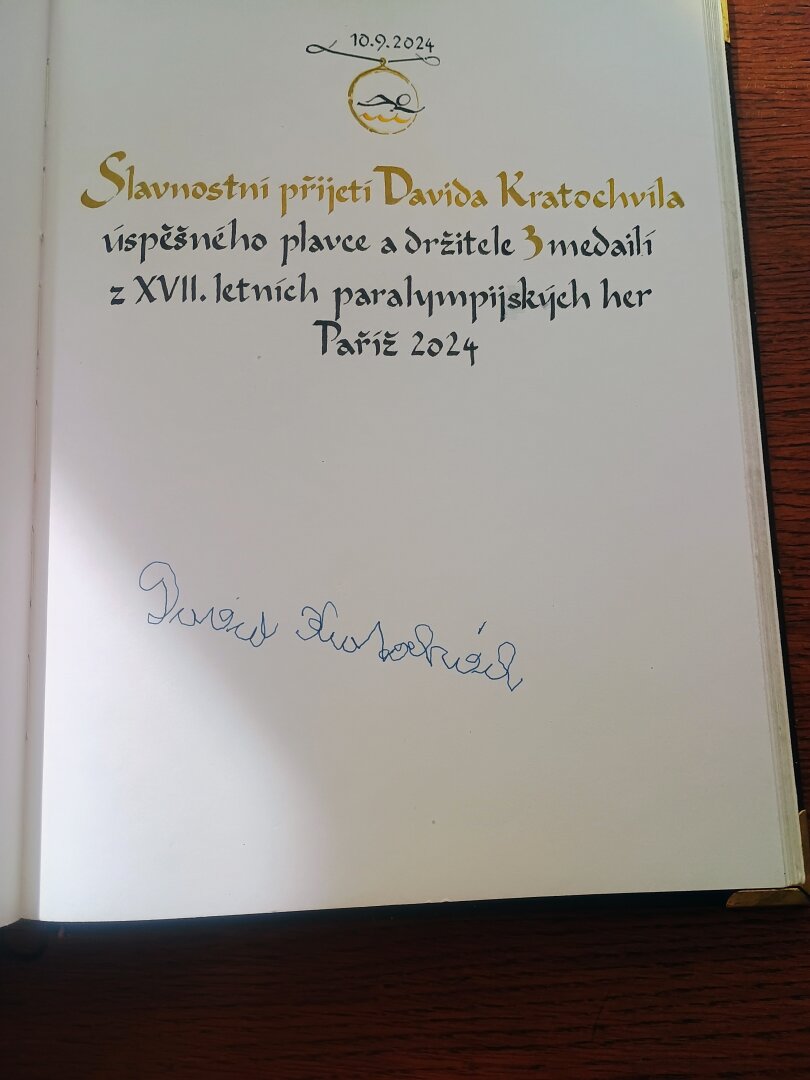 10.9.2024
Slavnostní přijetí Davida Kratochvíla
úspěšného plavce a držitele 3 medailí
z XVII. letních paralympijských her
Paříž 2024
David Kratochvíl